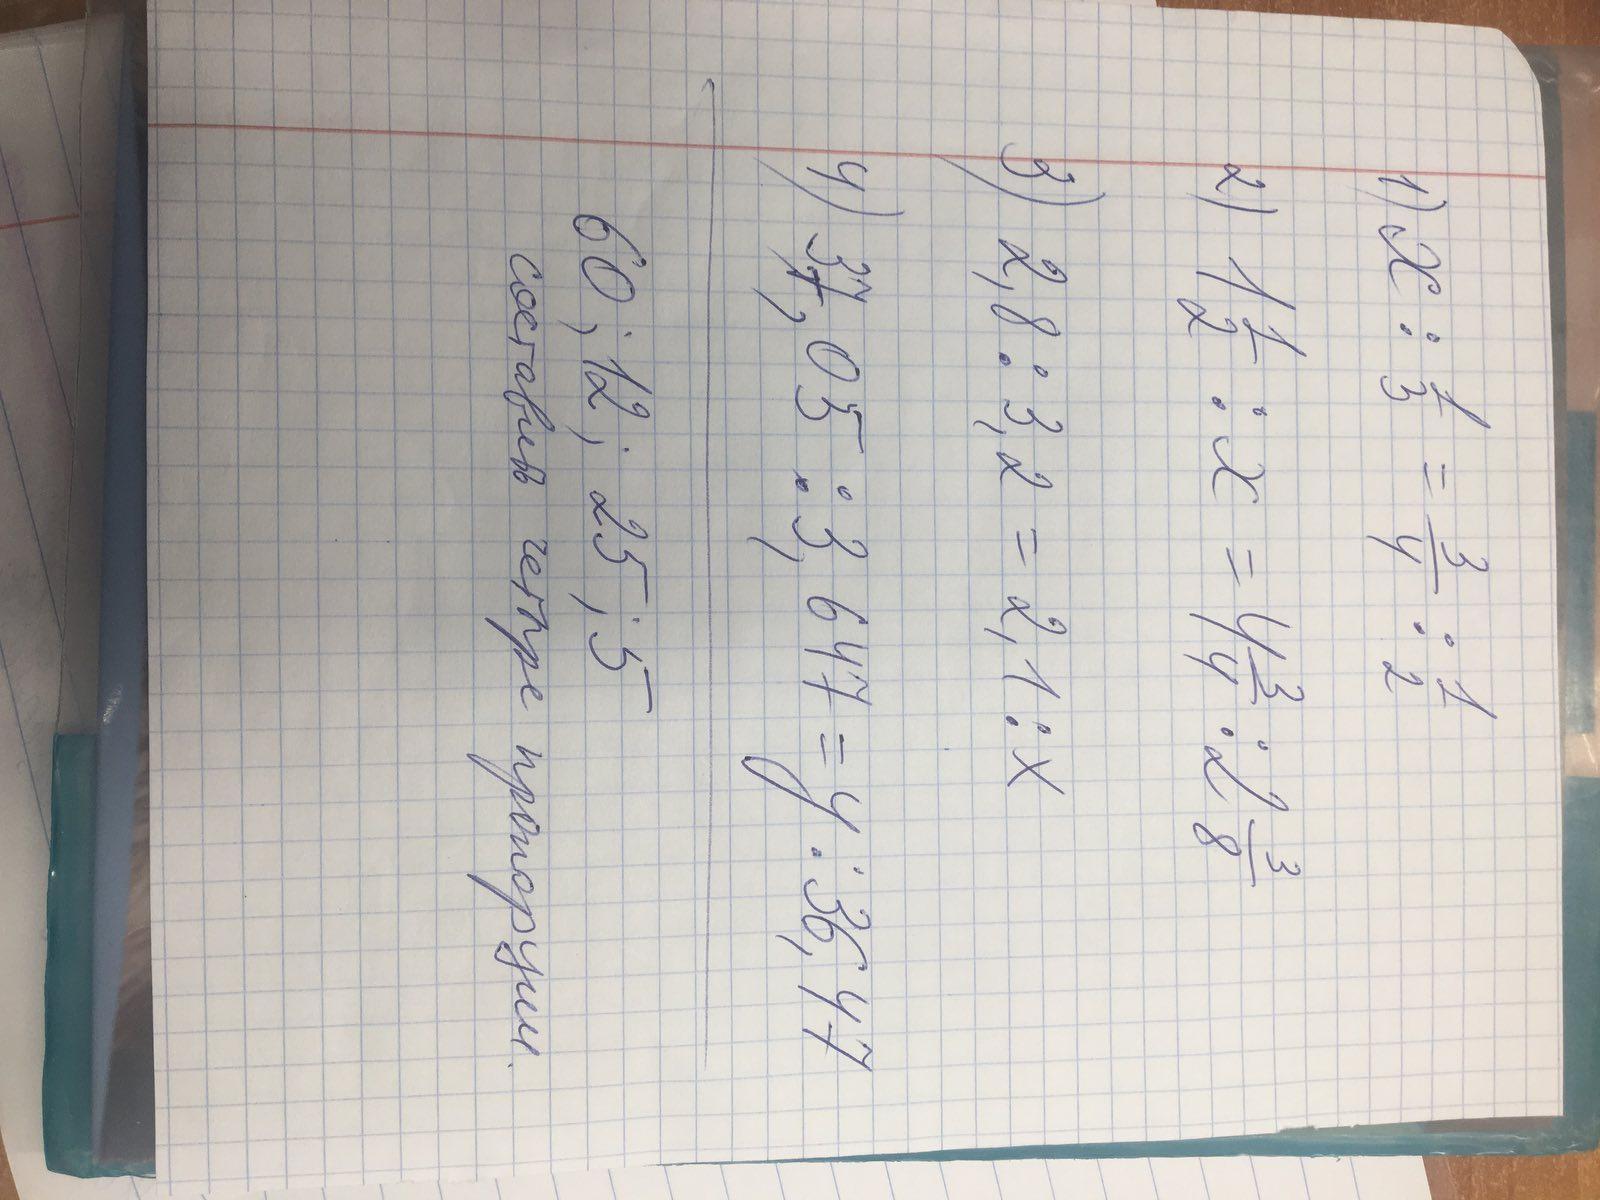 1) x : 1/3 = 3/4 : 1/2
2) 1 1/2 : x = 4 3/4 : 2 3/8
3) 2,8 : 3,2 = 2,1 : x
4) 37,05 : 3,647 = y : 36,47
60; 12; 25; 5
составив четыре пропорции.